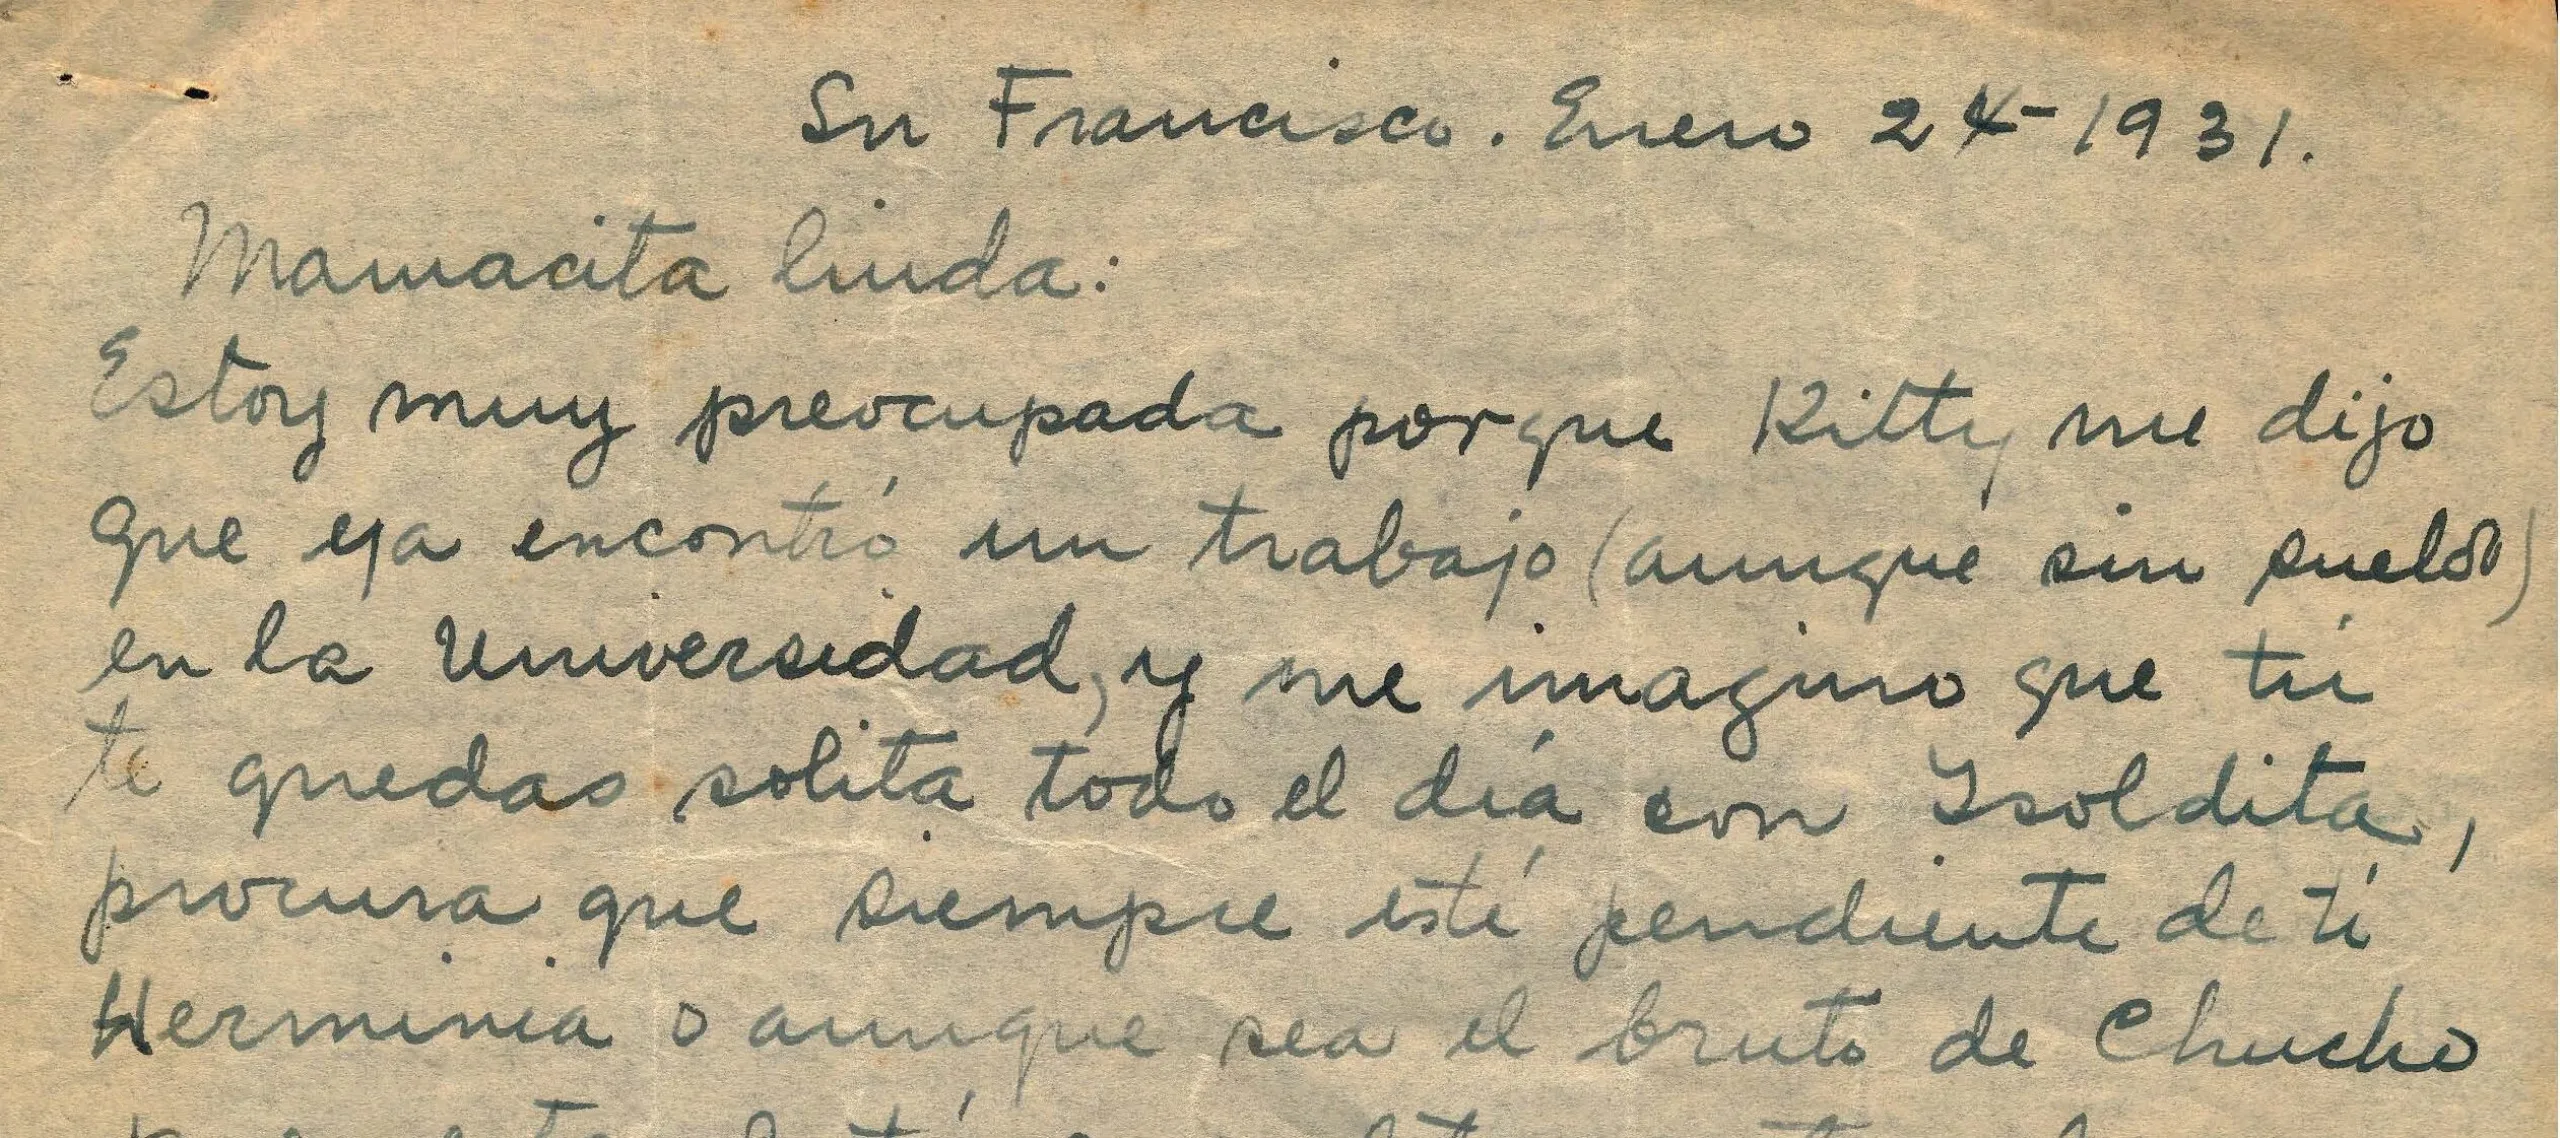 Sn Francisco. Enero 24-1931.
Mamacita linda:
Estoy muy preocupada porque Kitty me dijo
que ya encontró un trabajo (aunque sin sueldo)
en la Universidad, y me imagino que tú
te quedas solita todo el día con Isoldita,
procura que siempre esté pendiente de tí
Herminia o aunque sea el bruto de Chucho